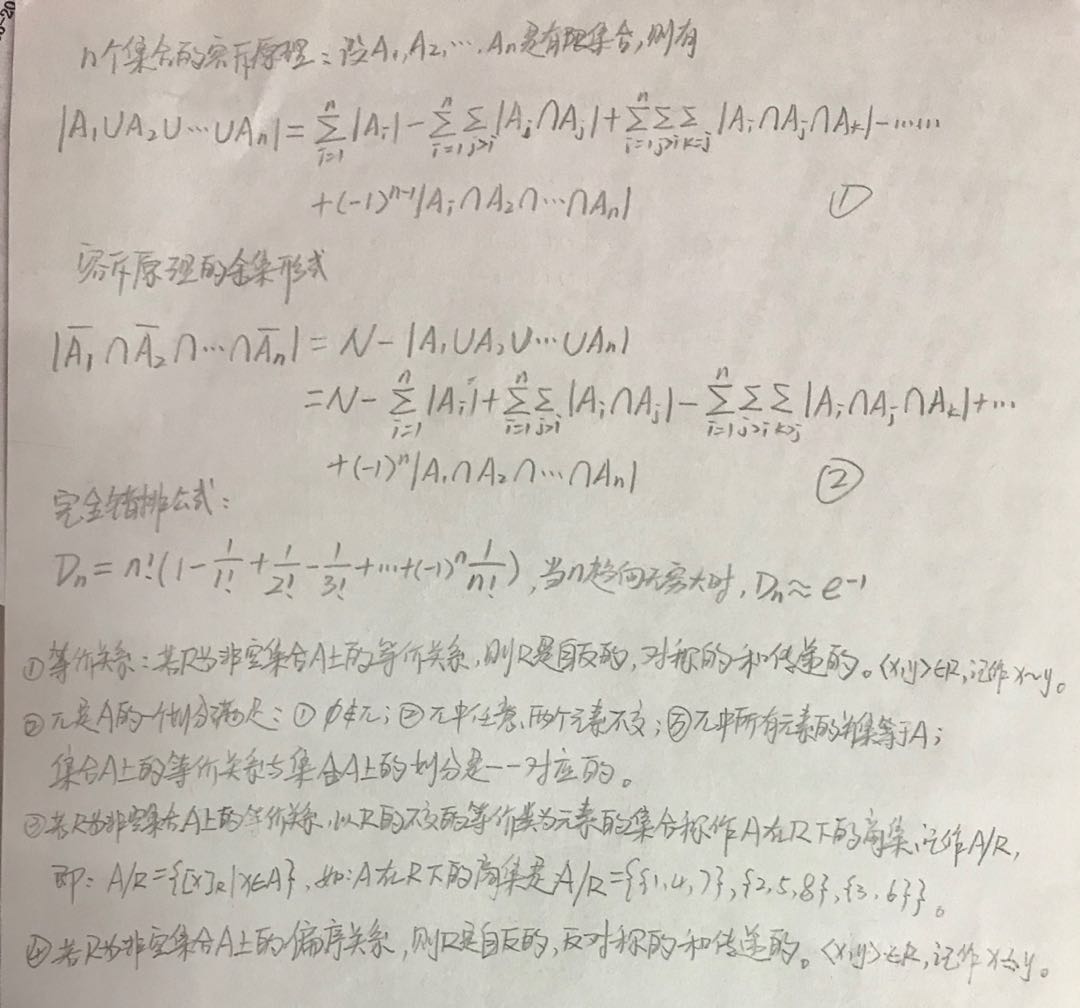 n个集合的容斥原理:设A₁,A₂,…,Aₙ是有限集合,则有
|A₁∪A₂∪…∪Aₙ|=∑ⁿᵢ₌₁|Aᵢ|-∑ⁿᵢ₌₁∑ⱼ>ᵢ|Aᵢ∩Aⱼ|+∑ⁿᵢ₌₁∑ⱼ>ᵢ∑ₖ₌ⱼ|Aᵢ∩Aⱼ∩Aₖ|-……
+(-1)ⁿ⁻¹|Aᵢ∩A₂∩…∩Aₙ| ①
容斥原理的余集形式
|A̅₁∩A̅₂∩…∩A̅ₙ|=N-|A₁∪A₂∪…∪Aₙ|
=N-∑ⁿᵢ₌₁|Aᵢ|+∑ⁿᵢ₌₁∑ⱼ>ᵢ|Aᵢ∩Aⱼ|-∑ⁿᵢ₌₁∑ⱼ>ᵢ∑ₖ>ⱼ|Aᵢ∩Aⱼ∩Aₖ|+…
+(-1)ⁿ|A₁∩A₂∩…∩Aₙ| ②
完全错排公式:
Dₙ=n!(1-1/1!+1/2!-1/3!+…+(-1)ⁿ1/n!),当n趋向无穷大时,Dₙ≈e⁻¹
①等价关系:若R为非空集合A上的等价关系,则R是自反的,对称的和传递的。<x,y>∈R,记作x~y。
②π是A的一个划分满足:①∅∉π;②π中任意两个元素不交;③π中所有元素的并集等于A;
集合A上的等价关系与集合A上的划分是一一对应的。
③若R为非空集合A上的等价关系,以R的不交的等价类为元素的集合称作A在R下的商集,记作A/R,
即:A/R={[x]ᵣ|x∈A},如:A在R下的商集是A/R={{1,4,7},{2,5,8},{3,6}}。
④若R为非空集合A上的偏序关系,则R是自反的,反对称的和传递的。<x,y>∈R,记作x≼y。